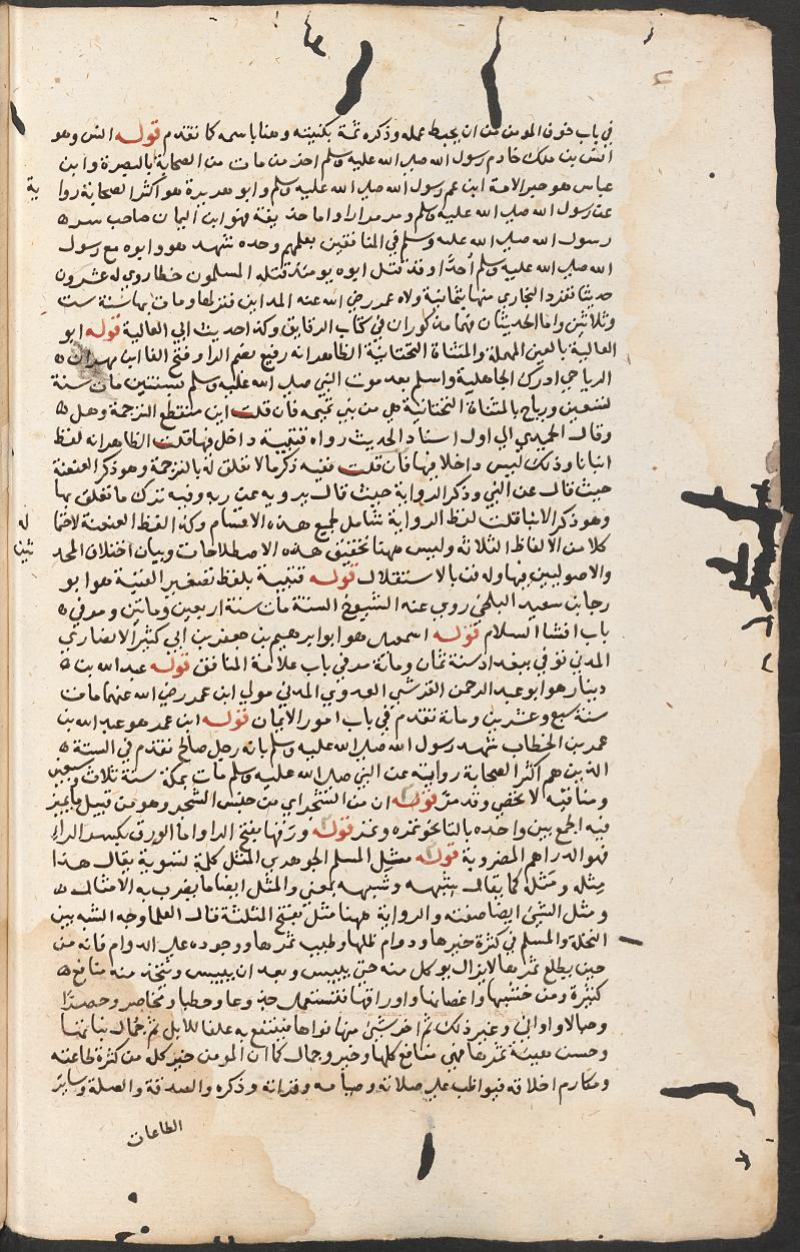 في باب خوف المومن من ان يحبط عمله وذكره ثمة بكنيته وهنا باسمه كما تقدم قوله انس وهو
انس بن ملك خادم رسول الله صلى الله عليه وسلم اخر من مات من الصحابة بالبصرة وابن
عباس هو حبر الامة ابن عم رسول الله صلى الله عليه وسلم وابو هريرة هو اكثر الصحابة روا
ية
عن رسول الله صلى الله عليه وسلم ومر مرارا واما حذيفة فهو ابن اليمان صاحب سر
رسول الله صلى الله عليه وسلم في المنافقين يعلمهم وحده شهد هو وابوه مع رسول
الله صلى الله عليه وسلم أحدًا وقد قتل ابوه يومئذ قتله المسلمون خطا روي له عشرون
حديثا تفرد البخاري منها بثمانية ولاه عمر رضي الله عنه المداين فنزلها ومات بها سنة ست
وثلاثين واما الحديثان فهما مذكوران في كتاب الرقايق وكذا حديث ابي العالية قوله ابو
العالية بالعين المهملة والمثناة التحتانية الظاهر انه رفيع بضم الرا وفتح الفا ابن مهران
الرياحي ادرك الجاهلية واسلم بعد موت النبي صلى الله عليه وسلم بسنتين مات سنة
تسعين ورياح بالمثناة التحتانية هي من بني تميم فان قلت اين منقطع الترجمة وهل
وقال الحميدي الى اول اسناد الحديث رواه قتيبة داخل فيها قلت الظاهر انه لفظ
انبانا وذلك ليس داخلا فيها فان قلت ففيه ذكر ما لا تعلق له بالترجمة وهو ذكر العنعنة
حيث قال عن النبي وذكر الرواية حيث قال يرويه عن ربه وفيه ترك ما تعلق بها
وهو ذكر الانبا قلت لفظ الرواية شامل لجميع هذه الاقسام وكذا لفظ العنعنة لاحتما
له
كلا من الالفاظ الثلاثة وليس ههنا تحقيق هذه الاصطلاحات وبيان اختلاف المحد
ثين
والاصوليين فيها وله فن بالاستقلال قوله قتيبة بلفظ تصغير القتبة هو ابو
رجا بن سعيد البلخي روي عنه الشيوخ الستة مات سنة اربعين وماتين ومر في
باب افشا السلام قوله اسمعيل هو ابو ابرهيم بن جعفر بن ابي كثير الانصاري
المدني توفي ببغداد سنة ثمان ومائة مر في باب علامة المنافق قوله عبد الله بن
دينار هو ابو عبد الرحمن القرشي العدوي المدني مولي ابن عمر رضي الله عنهما مات
سنة سبع وعشرين ومائة تقدم في باب امور الايمان قوله ابن عمر هو عبد الله بن
عمر بن الخطاب شهد رسول الله صلى الله عليه وسلم بانه رجل صالح تقدم في الستة
الذين هم اكثر الصحابة روايته عن النبي صلى الله عليه وسلم مات بمكة سنة ثلاث وسبعين
ومناقبه لا تخفي وقد مر قوله ان من الشجر اي من جنس الشجر وهو من قبيل ما يميز
فيه الجمع بين واحده بالتا نحو تمره وتمر قوله ورقها بفتح الرا واما الورق بكسر الراء
فهو الدراهم المضروبة قوله مثل المسلم الجوهري المثل كلمة تسوية يقال هذا
مِثله ومَثله كما يقال شِبهه وشَبهه بمعني والمثل ايضا ما يضرب به الامثال
ومثل الشيء ايضا صفته والرواية ههنا مثل بفتح الثلثة قال العلما وجه الشبه بين
النخلة والمسلم في كثرة خيرها ودوام ظلها وطيب ثمرها ووجوده على الدوام فانه من
حين يطلع ثمرها لا يزال يوكل منه حتى ييبس وبعد ان ييبس ويتخذ منه منافع
كثيرة ومن خشبها واغصانها واوراقها فتستعمل جذوعا وحطبا ومخاصر وحصرًا
وحبالا واواني وغير ذلك ثم اخر شيء منها نواها فينتفع به علفا للابل ثم جمال نباتها
وحسن هيئة ثمرها فهي منافع كلها وخير وجمال كما ان المومن خير كله من كثرة طاعته
ومكارم اخلاقه فيواظب على صلاته وصيامه وقراته وذكره والصدقة والصلة وساير
الطاعات